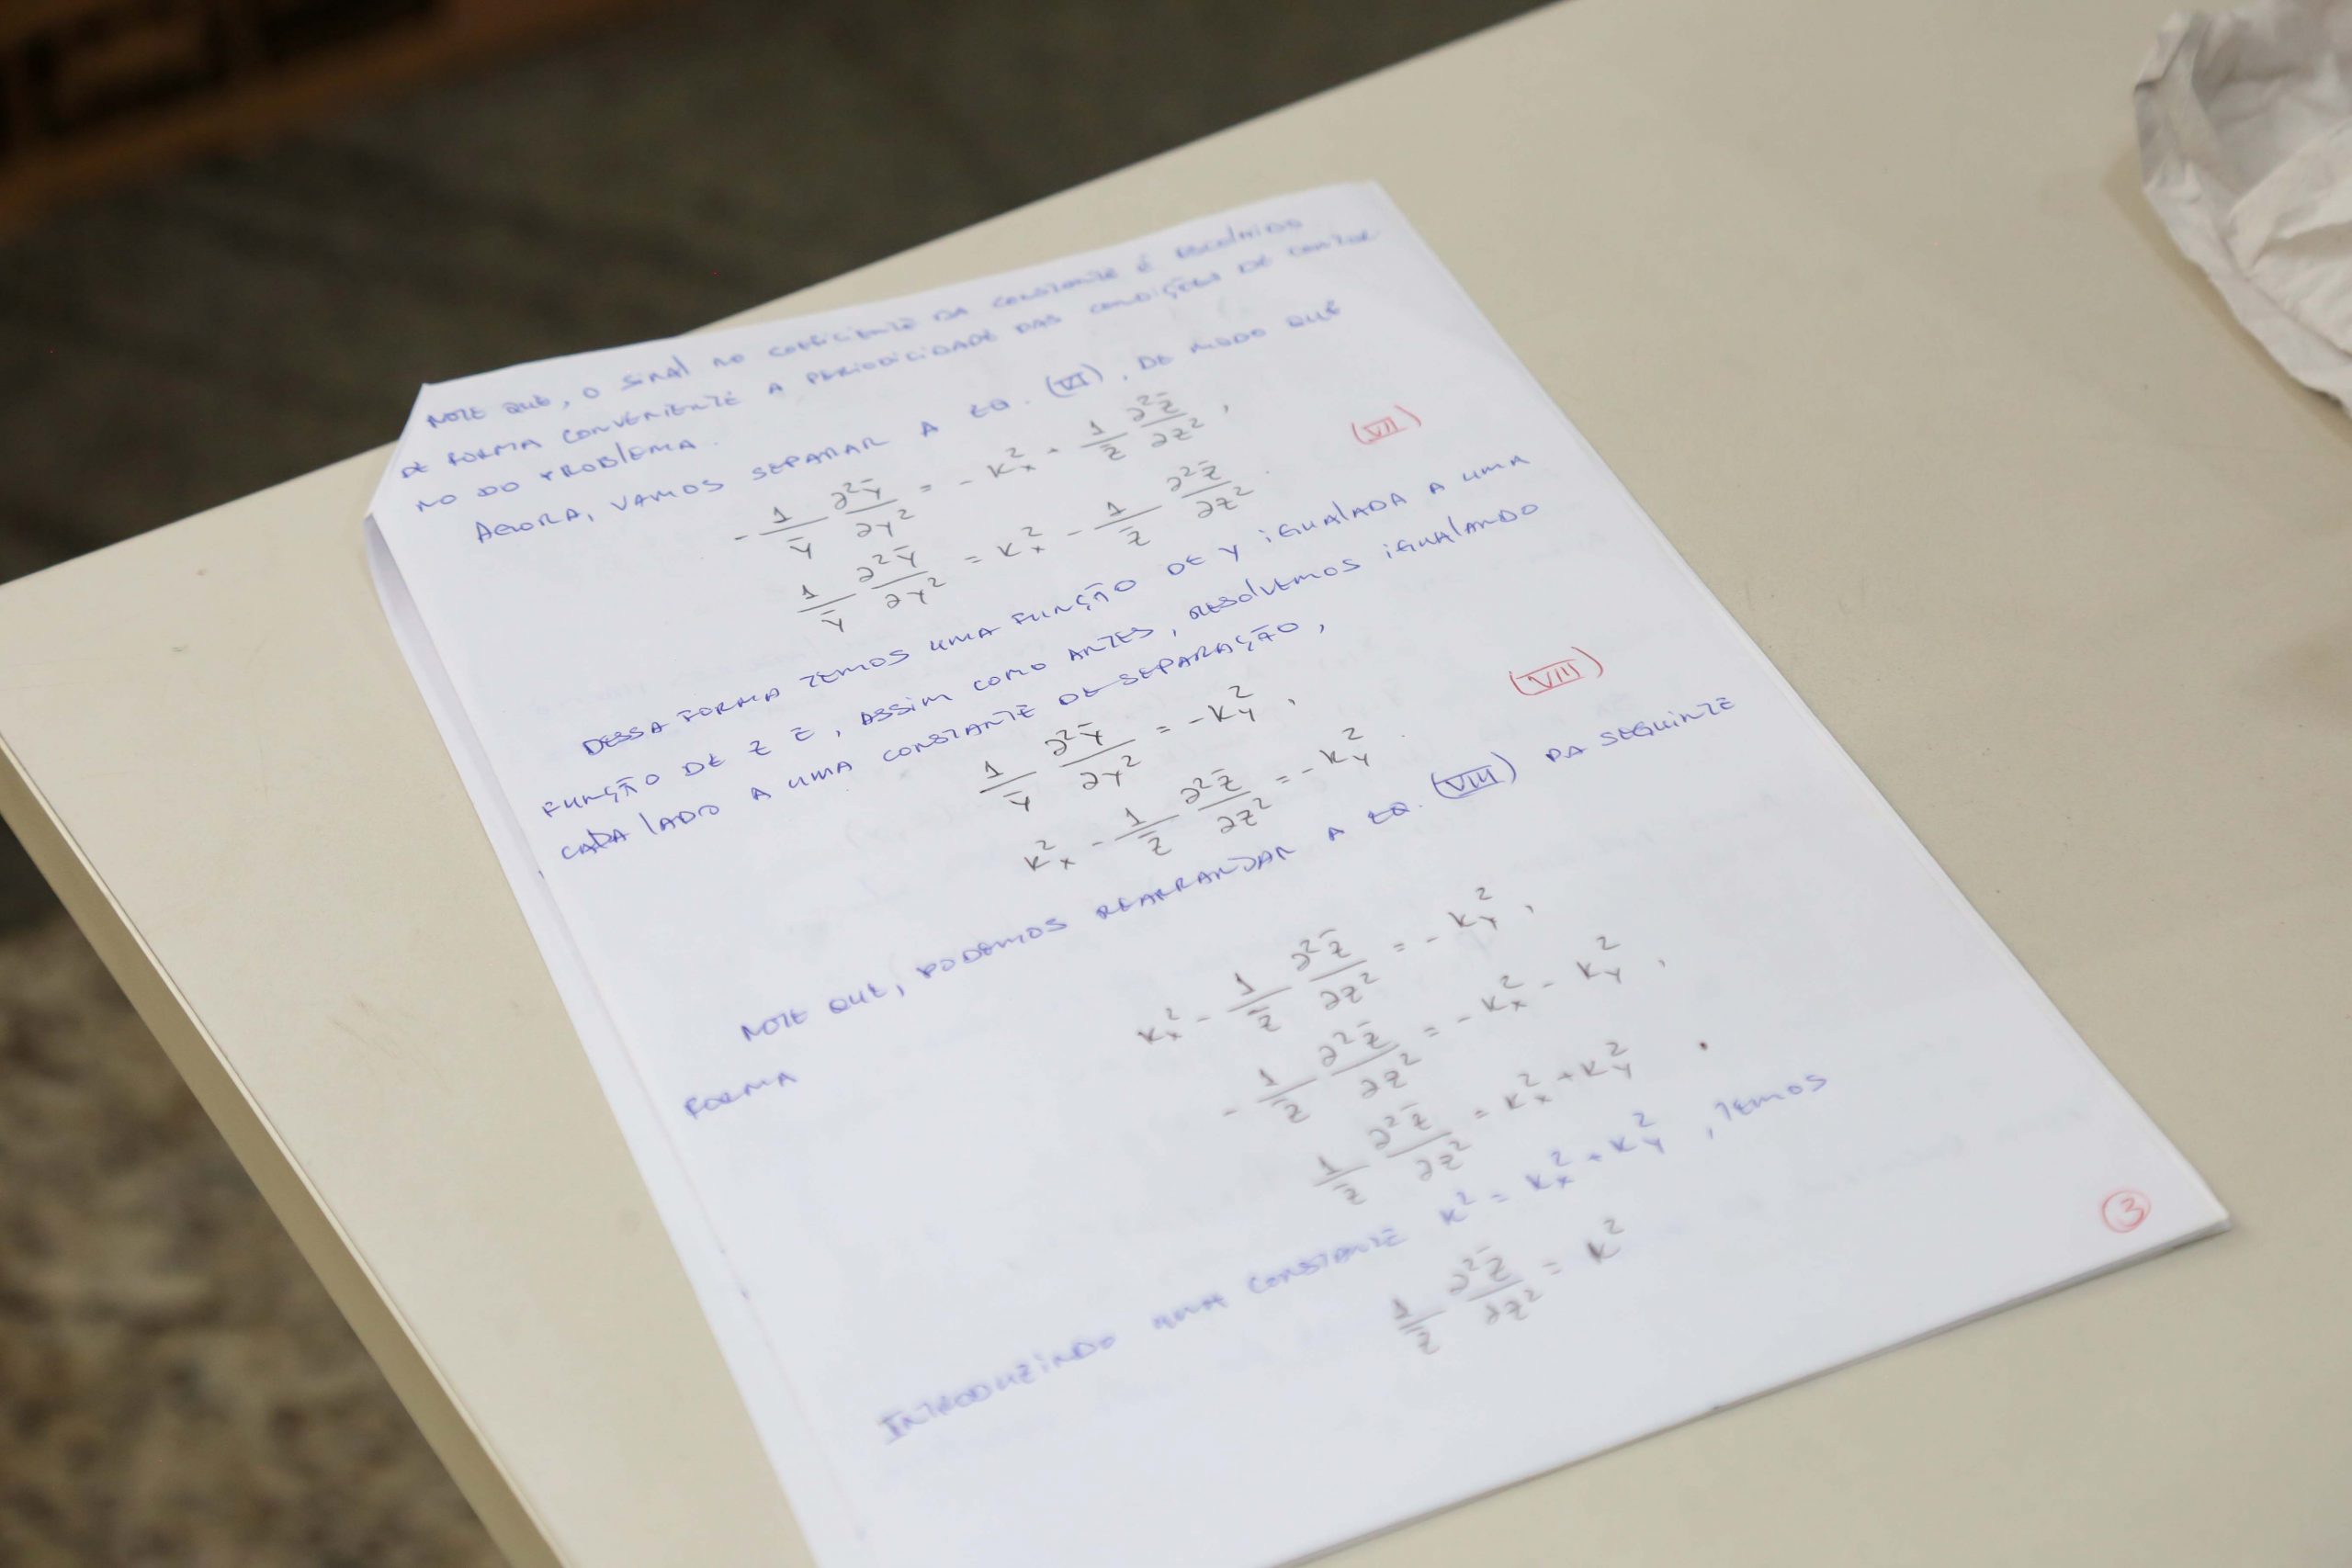 NOTE QUE, O SINAL NO COEFICIENTE DA CONSTANTE É ESCOLHIDO
DE FORMA CONVENIENTE A PERIODICIDADE DAS CONDIÇÕES DE CONTOR-
NO DO PROBLEMA.
AGORA, VAMOS SEPARAR A EQ. (VI), DE MODO QUE
- 1/Z̄ ∂²Ȳ/∂Y² = - K²ₓ + 1/Z̄ ∂²Z̄/∂Z² ,
1/Ȳ ∂²Ȳ/∂Y² = K²ₓ - 1/Z̄ ∂²Z̄/∂Z² . (VII)
DESSA FORMA TEMOS UMA FUNÇÃO DE Y IGUALADA A UMA
FUNÇÃO DE Z E, ASSIM COMO ANTES, RESOLVEMOS IGUALANDO
CADA LADO A UMA CONSTANTE DE SEPARAÇÃO,
1/Ȳ ∂²Ȳ/∂Y² = -K_Y² ,
K²ₓ - 1/Z̄ ∂²Z̄/∂Z² = -K_Y² . (VIII)
NOTE QUE, PODEMOS REARRANJAR A EQ. (VIII) DA SEGUINTE
FORMA
K²ₓ - 1/Z̄ ∂²Z̄/∂Z² = - K_Y² ,
- 1/Z̄ ∂²Z̄/∂Z² = - K²ₓ - K_Y² ,
1/Z̄ ∂²Z̄/∂Z² = K²ₓ + K_Y² .
INTRODUZINDO UMA CONSTANTE K² = K²ₓ + K_Y² , TEMOS
1/Z̄ ∂²Z̄/∂Z² = K²
3